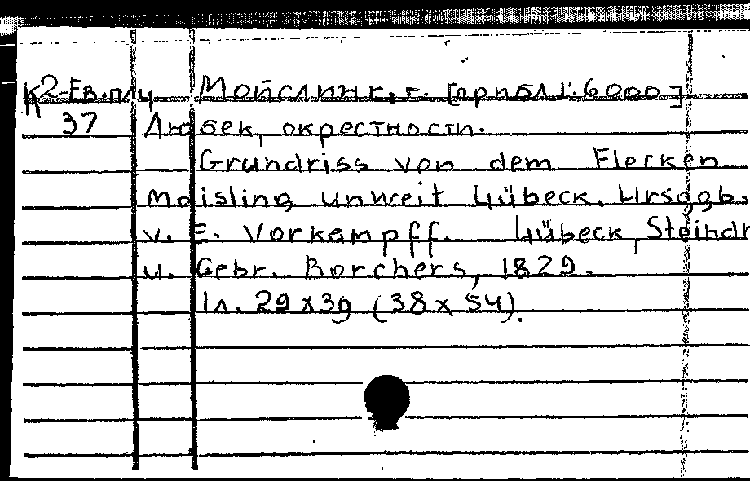 К2-Ев.пл/4 Мойслинг, г. [прибл 1:6000]
37 Любек, окрестности.
Grundriss von dem Flecken
Moisling unweit Lübeck. Hrsggb.
v. E. Vorkampff. Lübeck, Steindr
u. Gebr. Borchers, 1829.
1л. 29 x 39 (38 x 54).